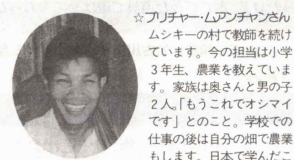 ☆プリチャー・ムアンチャンさん
ムシキーの村で教師を続け
ています。今の担当は小学
3年生、農業を教えていま
す。家族は奥さんと男の子
2人。「もうこれでオシマイ
です」とのこと。学校での
仕事の後は自分の畑で農業
もします。日本で学んだこ